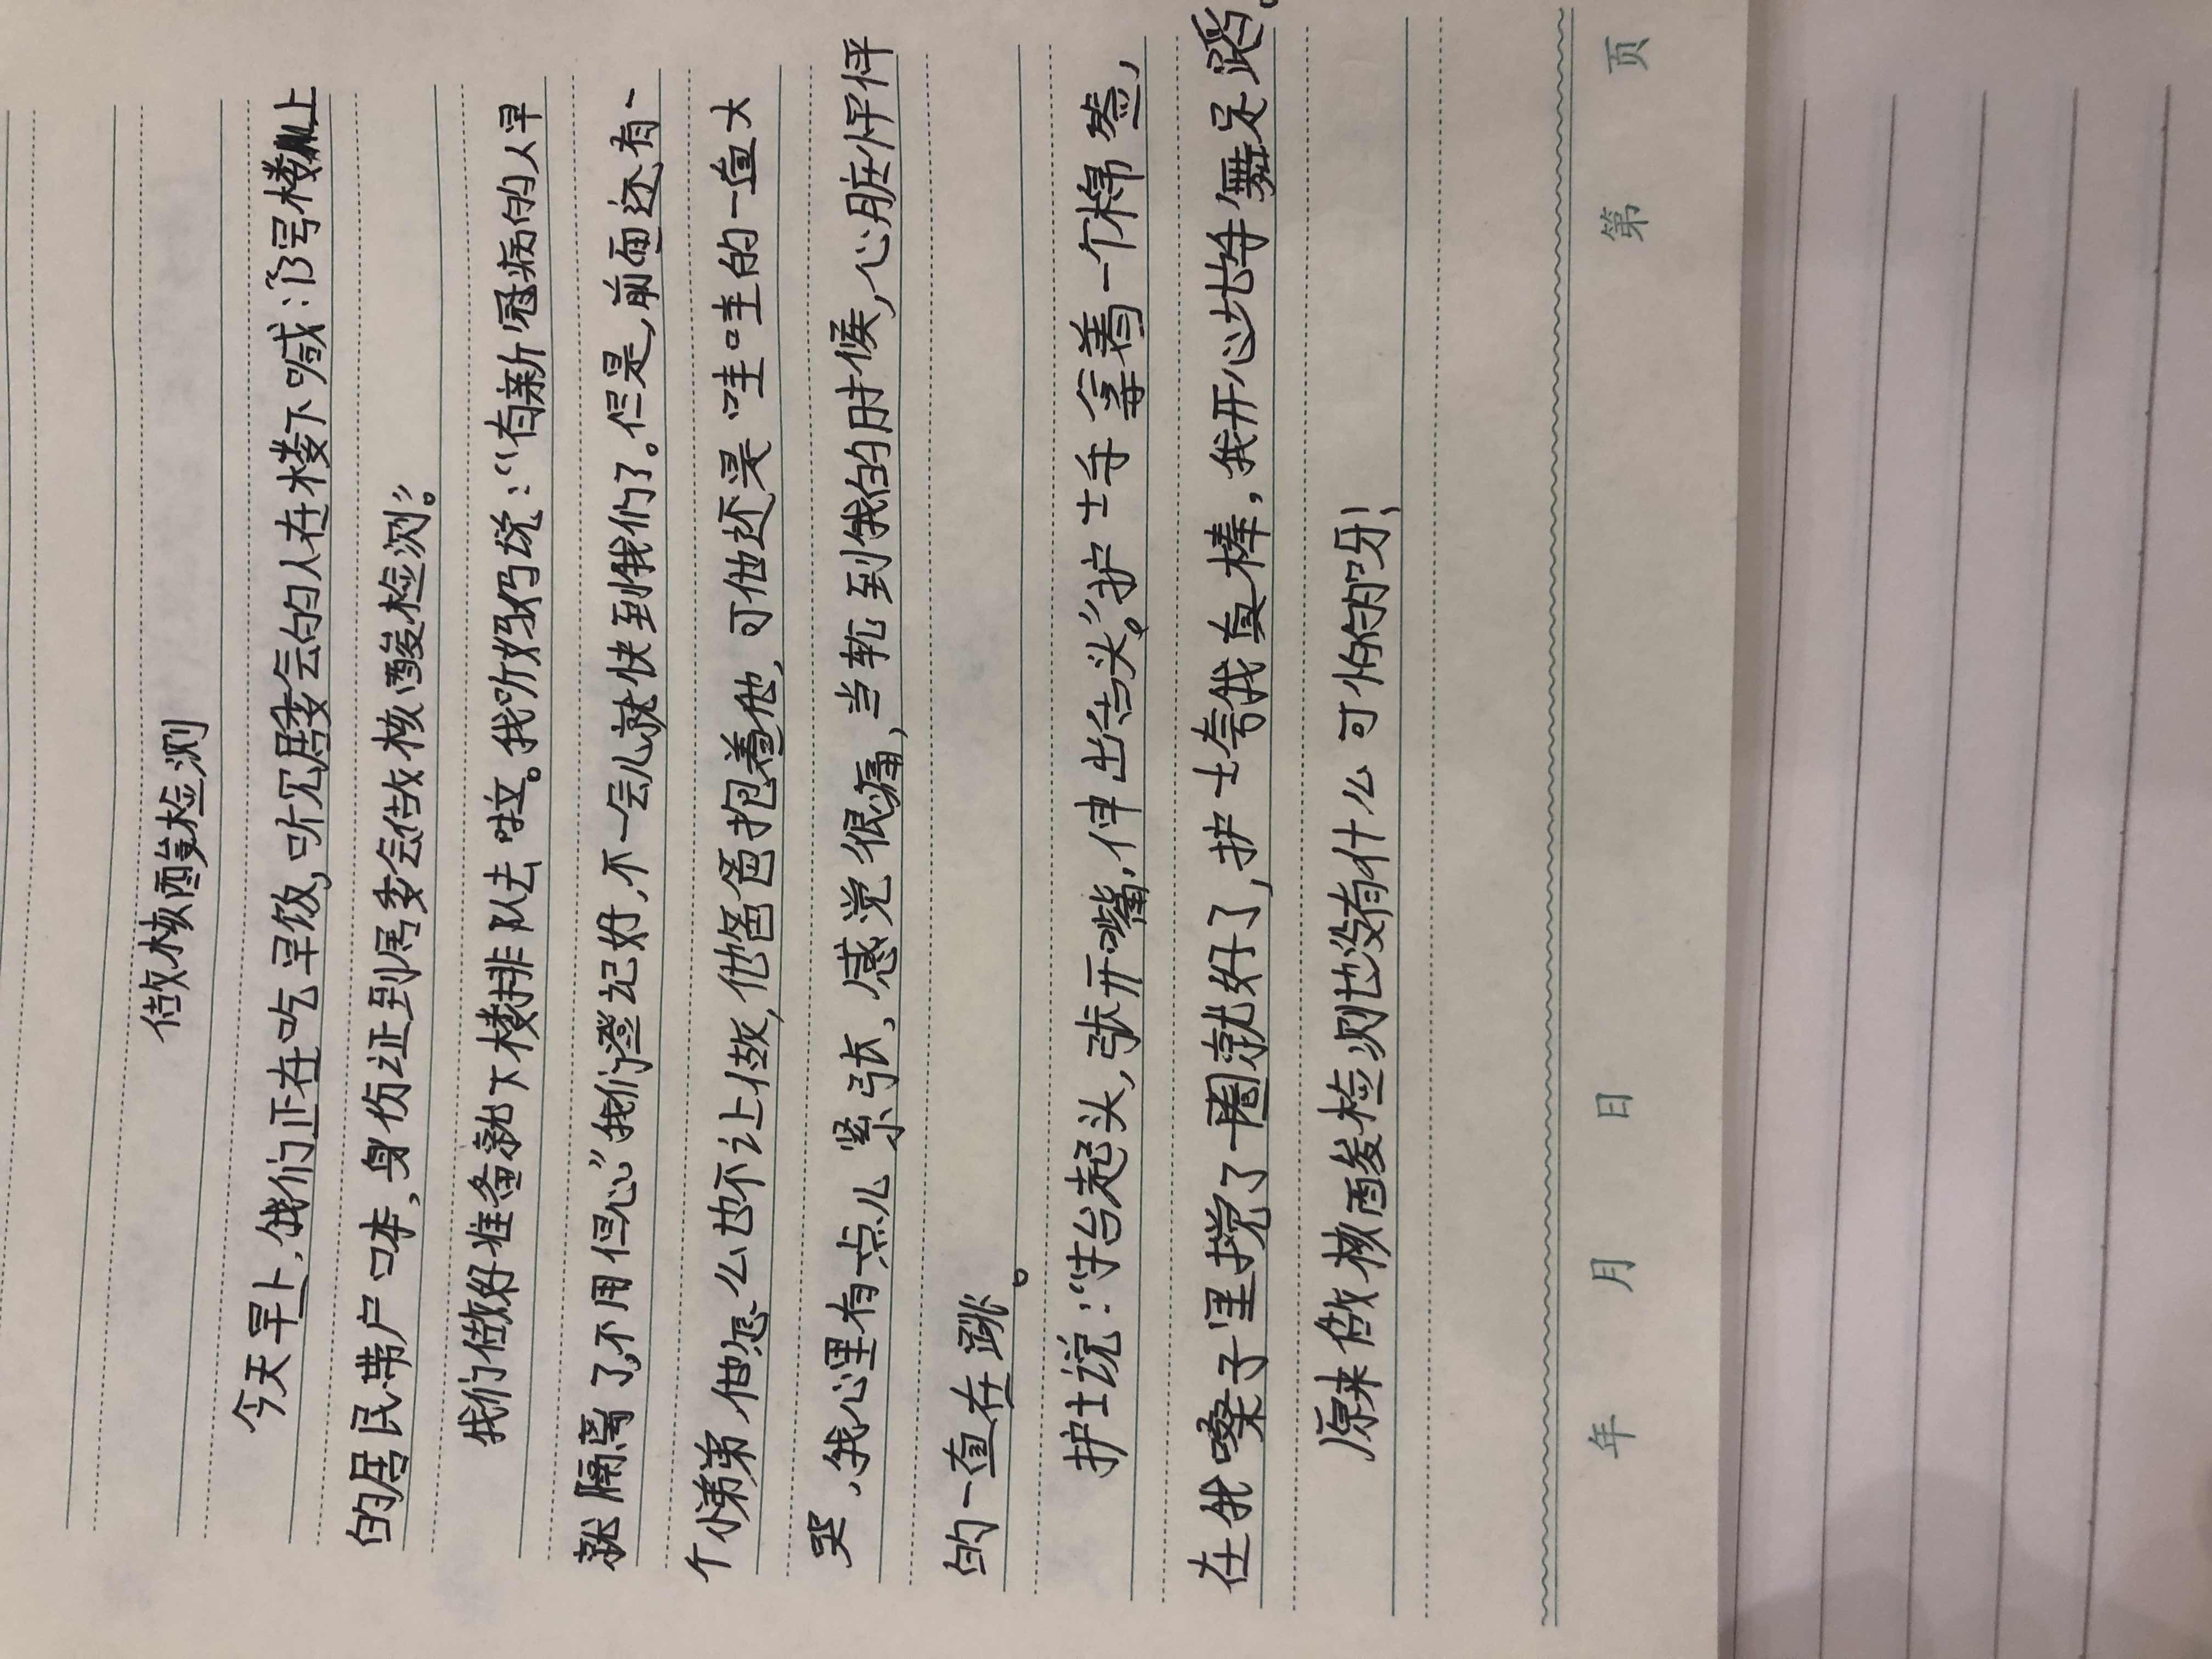 做核酸检测
今天早上,我们正在吃早饭,听见居委会的人在楼下喊:"3号楼上
的居民带户口本,身伤证到居委会做核酸检测。"
我们做好准备就下楼排队去啦。我听妈妈说:"有新冠病的人早
就隔离了,不用但心"我们登记好,不一会儿就快到我们了。但是,前面还有一
个小弟弟,他怎么也不让做,他爸爸抱着他,可他还是哇哇的一直大
哭,我心里有点儿紧张,感觉很痛,当轮到我的时候,心脏怦怦
的一直在跳。
护士说:"抬起头,张开嘴,伸出舌头。"护士手拿着一个棉签,
在我嗓子里搅了一圈就好了,护士夸我真棒,我开心地手舞足蹈。
原来做核酸检测也没有什么可怕的呀!
年 月 日 第 页